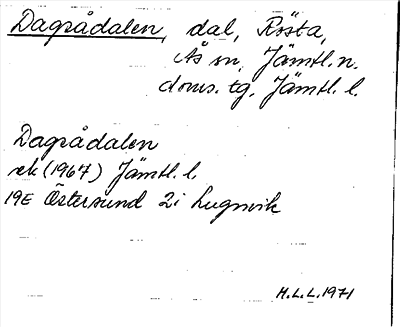 Dagsådalen, dal, Rösta,
Ås sn, Jämtl. n.
doms. tg. Jämtl. l.
Dagsådalen
ek (1967) Jämtl. l
19E Östersund 2i Lugnvik
H.L.L. 1971